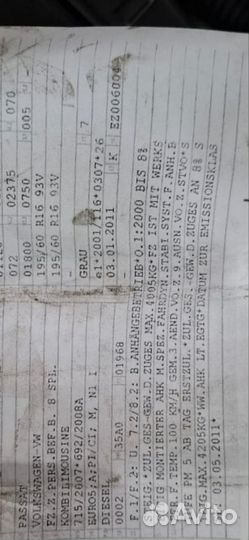 070
070
02375
005
-
072
01800
0750
195/60 R16 93V
195/60 R16 93V
-
GRAU
7
e1*2001/116*0307*26
03.01.2011
K
EZ006004
PASSAT
VOLKSWAGEN-VW
FZ.Z.PERS.BEF.B. 8 SPL.
KOMBILIMOUSINE
715/2007*692/2008A
EURO5;A:PI/CI; M, N1 I
DIESEL
0002
35A0
01968
F.1/F.2: U. 7.2/8.2: B.ANHÄNGEBETRIEB*O.1:2000 BIS 8%
STEIG.*ZUL.GES-GEW.D.ZUGES MAX.4005KG*FZ IST MIT WERKS
MONTIERTER AHK M.SPEZ.FAHRDYN.STABI.SYST.F.ANH.B
F.TEMP.100 KM/H GEM.3.AEND.VO.Z.9.AUSN.VO.Z.STVO*S
PM 5 AB TAG ERSTZUL.*ZUL.GES.-GEW.D.ZUGES AN 8% S
MAX.4205KG*WW.AHK LT.EGTG*DATUM ZUR EMISSIONSKLAS
03.05.2011*